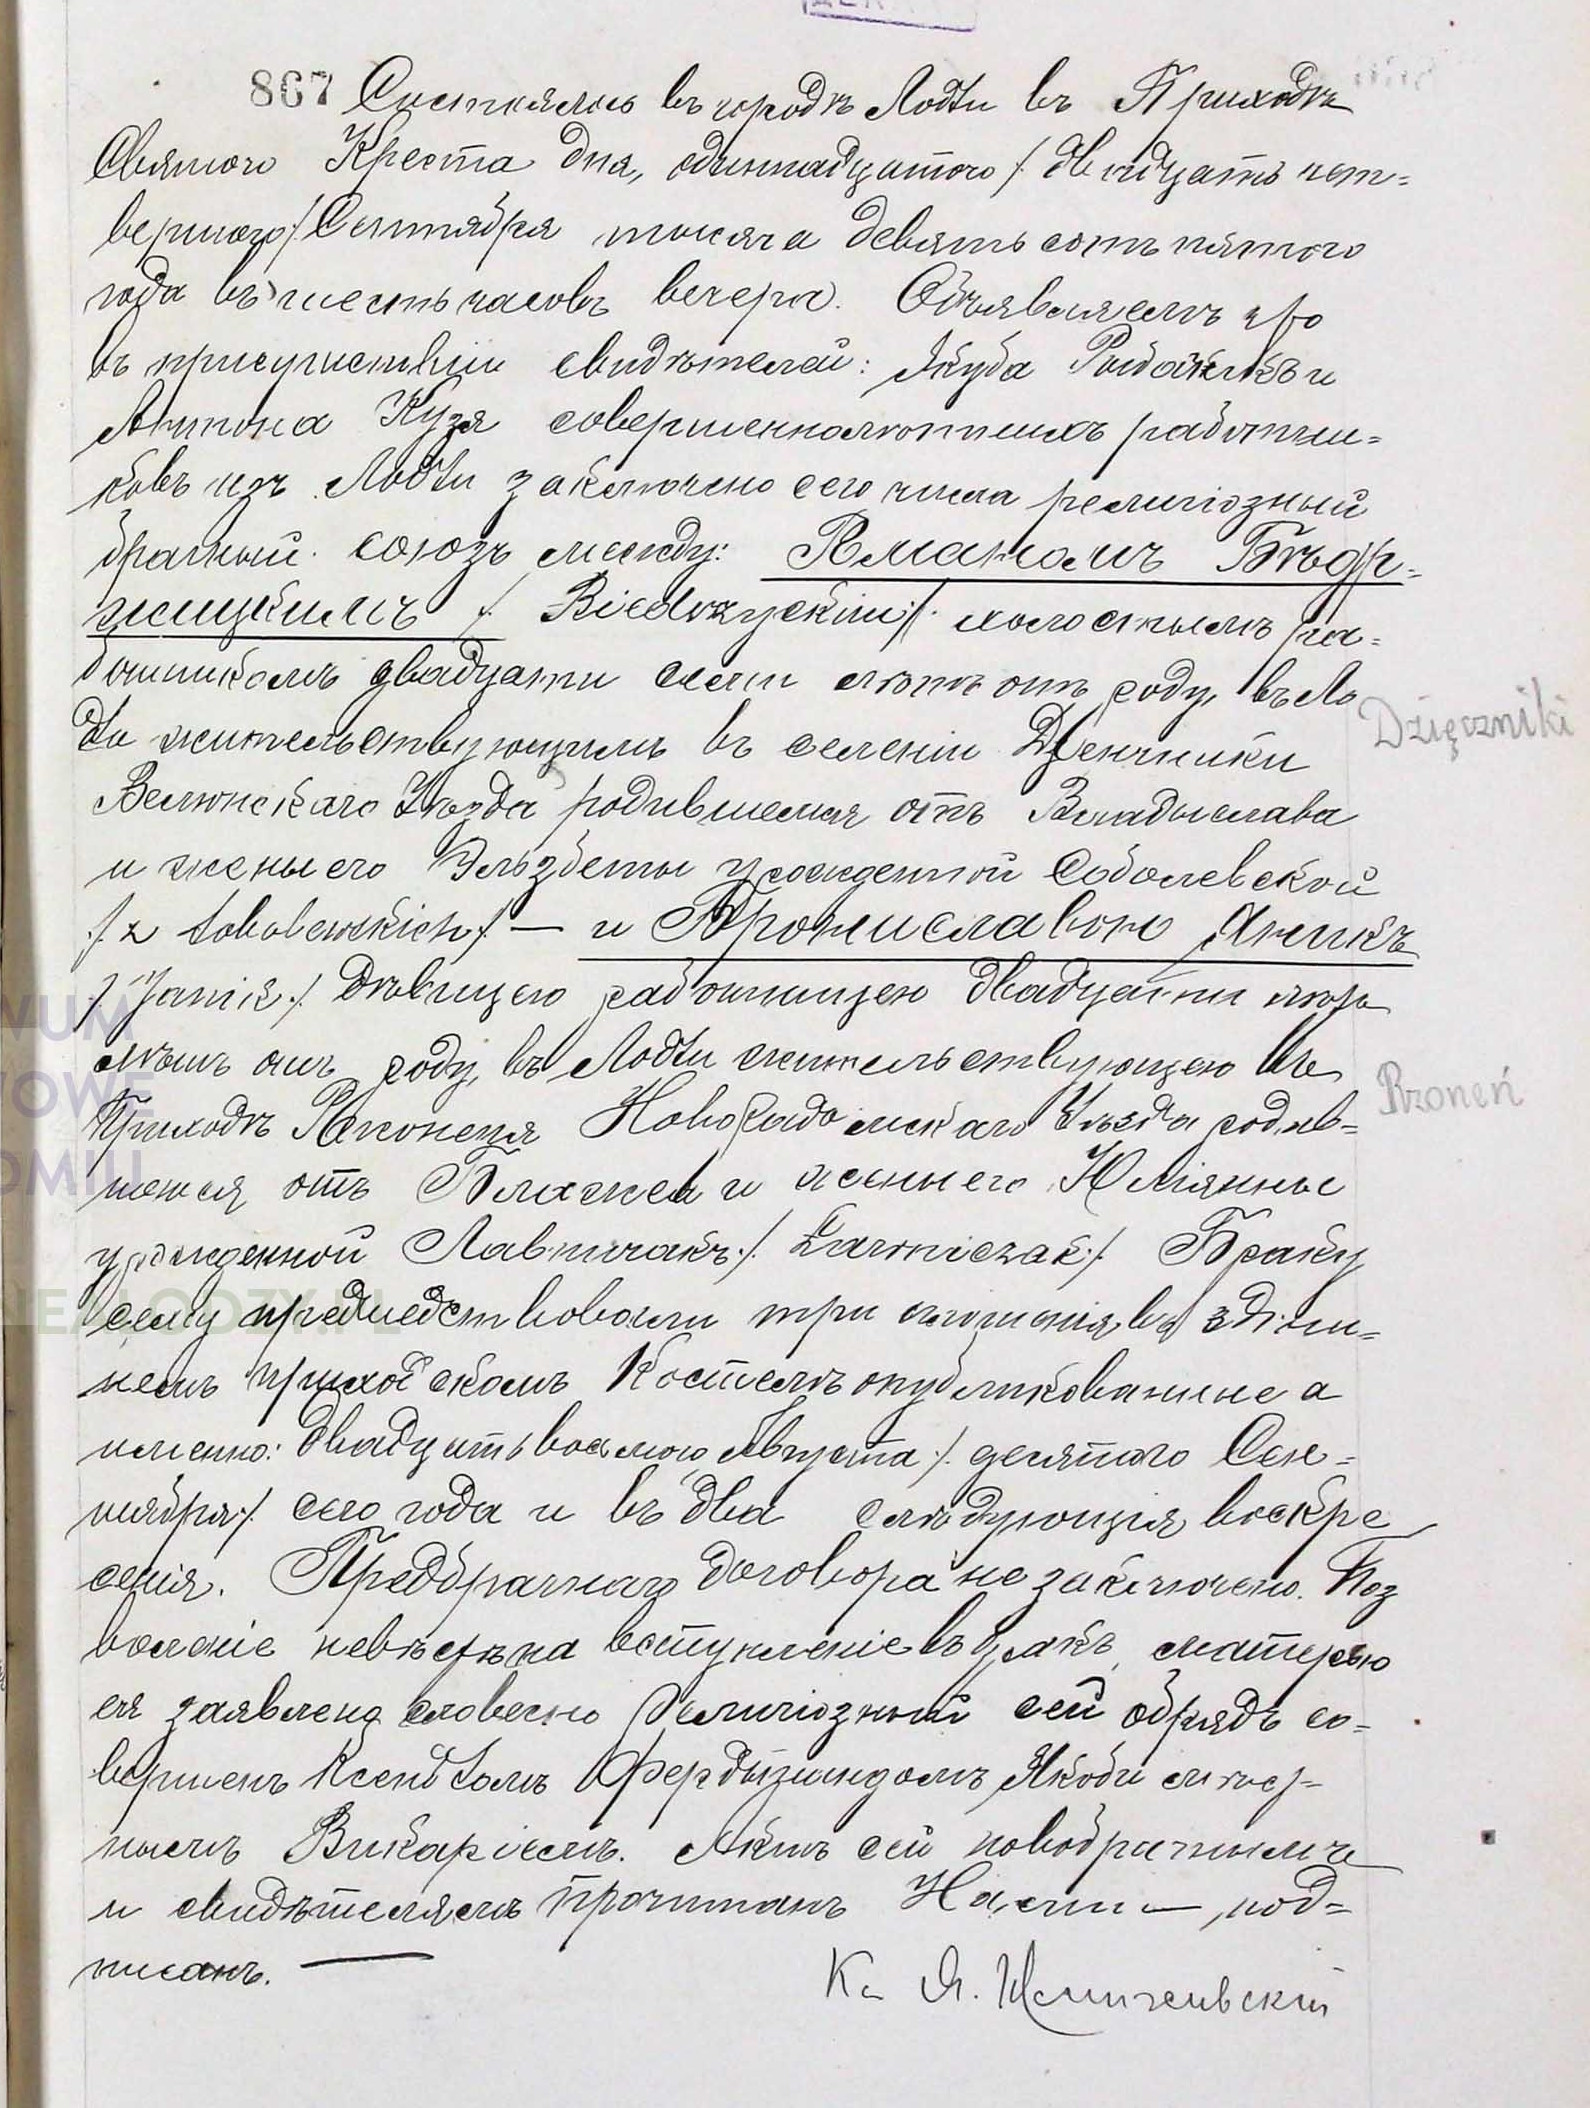 867 Состоялось въ городѣ Лодзи въ Приходѣ
Святого Креста дня, одиннадцатого /: двадцать чет=
вертого :/ Сентября тысяча девятьсотъ пятого
года въ шесть часовъ вечера. Объявляемъ что
въ присутствіи свидѣтелей: Якуба и
Антона Кузя совершеннолѣтнихъ работни=
ковъ изъ Лодзи заключено сего числа религіозный
брачный союзъ между: Романомъ Бѣдр=
жицкимъ /: Biedrzyckim :/ холостымъ ра=
ботникомъ двадцати семи лѣтъ отъ роду, въ Ло
дзи жительствующимъ въ селеніи Дзенчники
Велюнскаго Уѣзда родившемся отъ Владыслава
и жены его Эльзбеты урожденной Соболевской
/: z Sobolewskich :/ — и Брониславою Яникъ
/: Janik :/ дѣвицею работницею двадцати
лѣтъ отъ роду, въ Лодзи жительствующею въ
Приходѣ Новорадомскаго Уѣзда родив=
шеюся отъ Блажея и жены его Юліянны
урожденной Лавничакъ /: Ławniczak :/ Браку
сему предшедствовали три оглошенія въ здѣш=
немъ приходскомъ Костелѣ опубликованные а
именно: двадцать восьмого Августа /: десятаго Сен=
тября :/ сего года и въ два слѣдующія воскре
сенія. Предбрачнаго договора не заключено. Поз
воленіе невѣстѣ на вступленіе въ бракъ матерью
ея заявлено словесно Религіозный сей обрядъ со=
вершенъ Ксендзомъ Фердынандомъ Якоби
нымъ Викаріемъ. Актъ сей новобрачнымъ
и свидѣтелямъ прочитанъ Нами — под=
писанъ. —
Кс Я.
Dzięczniki
Rzoneń